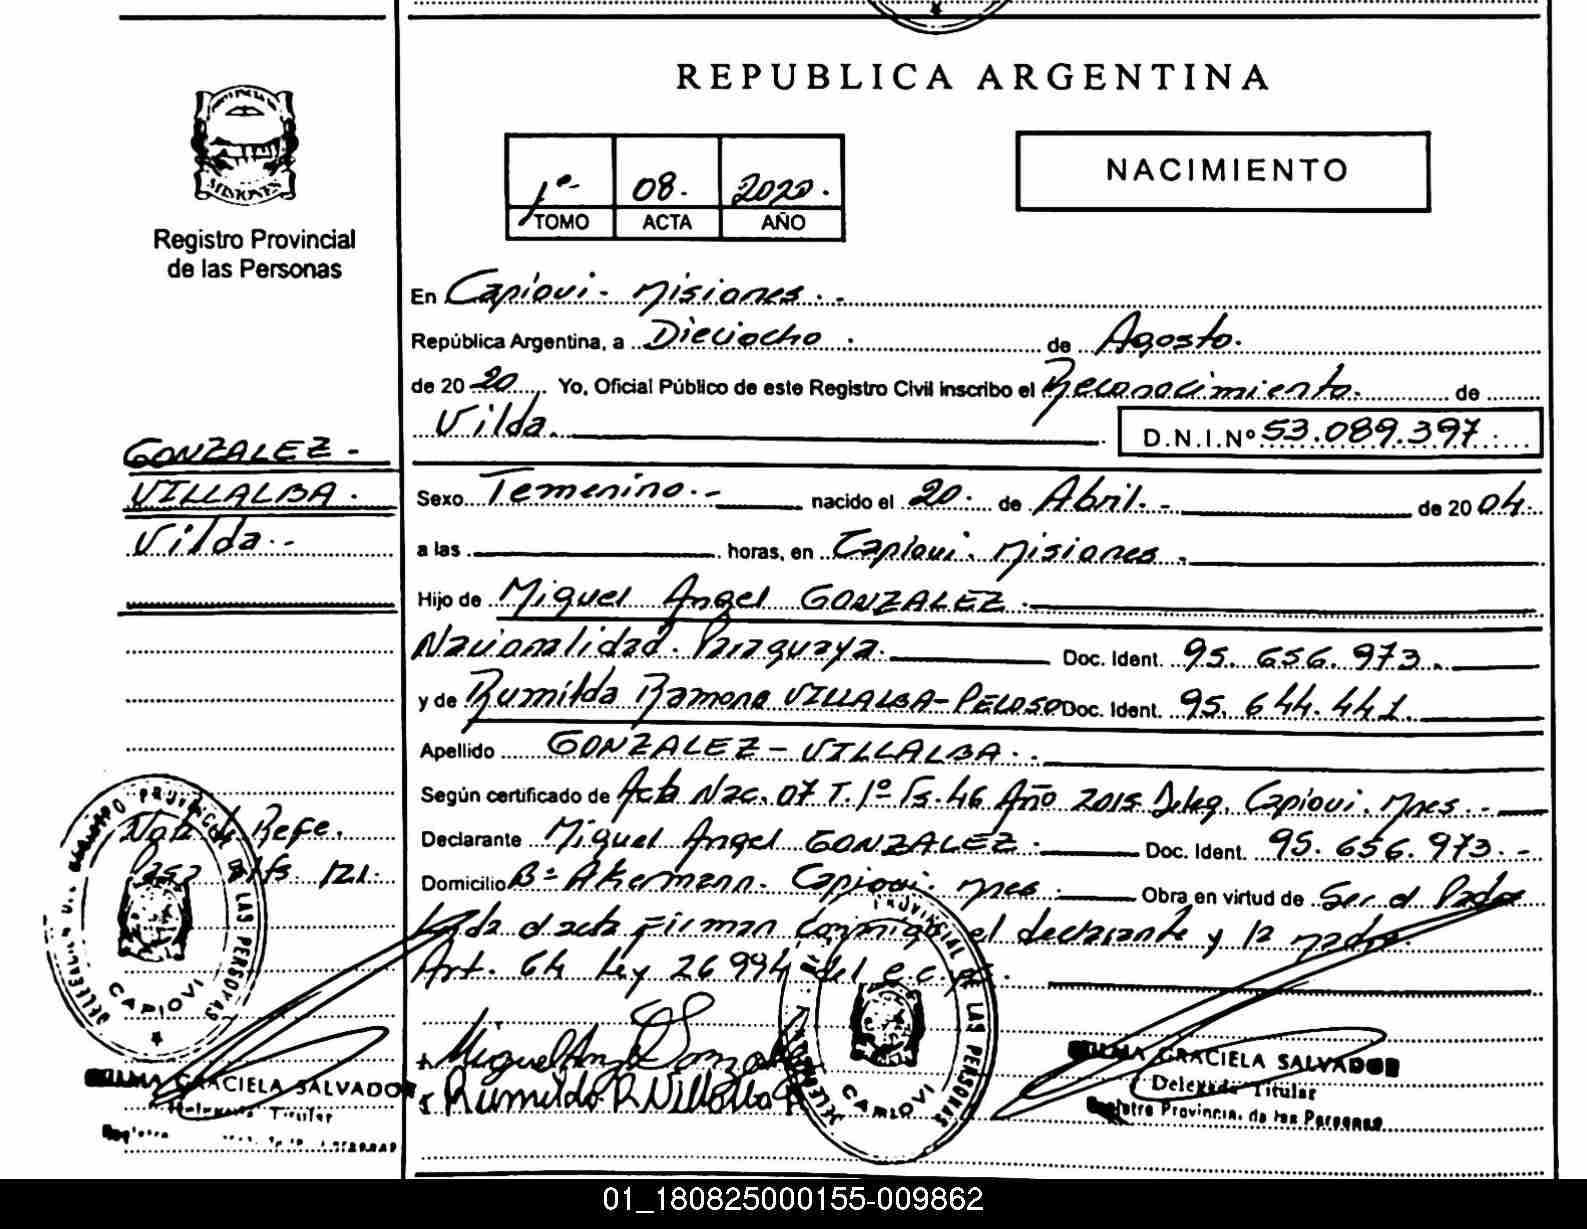 REPUBLICA ARGENTINA
PROVINCIA DE
MISIONES
Registro Provincial
de las Personas
1º- 08. 2020.
TOMO ACTA AÑO
NACIMIENTO
En Capiovi- Misiones.-
República Argentina, a Dieciocho. de Agosto.
de 20 20 Yo, Oficial Público de este Registro Civil inscribo el Reconocimiento. de
Vilda. D.N.I.Nº 53.089.397.
GONZALEZ-
VILLALBA.
Vilda.-
Sexo Femenino.- nacido el 20. de Abril.- de 20 04.
a las horas, en Capiovi. Misiones.
Hijo de Miguel Angel GONZALEZ.
Nacionalidad. Paraguaya. Doc. Ident. 95.656.973.
y de Rumilda Ramona VILLALBA-PELOSO Doc. Ident. 95.644.441.
Apellido GONZALEZ-VILLALBA.
Según certificado de Acta Nac. 07 T. 1º Fs. 46 Año 2015 Deleg. Capiovi. Mnes.-
Declarante Miguel Angel GONZALEZ. Doc. Ident. 95.656.973.-
Domicilio Bº Akermann. Capiovi. Mnes. Obra en virtud de Ser el Padre
el acta Firman conmigo el declarante y la madre.
Art. 64 Ley 26994 del
Nota de Refe.
Pasa Fs. 121.
REGISTRO PROVINCIAL DE LAS PERSONAS
CAPIOVI
PROVINCIAL DE LAS PERSONAS
CAPIOVI
Miguel Angel Gonzalez
Rumilda R Villalba P
GRACIELA SALVADOR
Titular
GRACIELA SALVADOR
Delegada Titular
Registro Provincial de las Personas
01_180825000155-009862